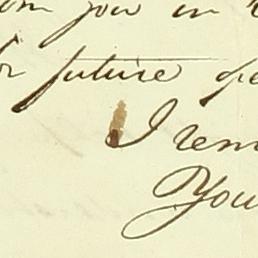 you in
future
I rem
You